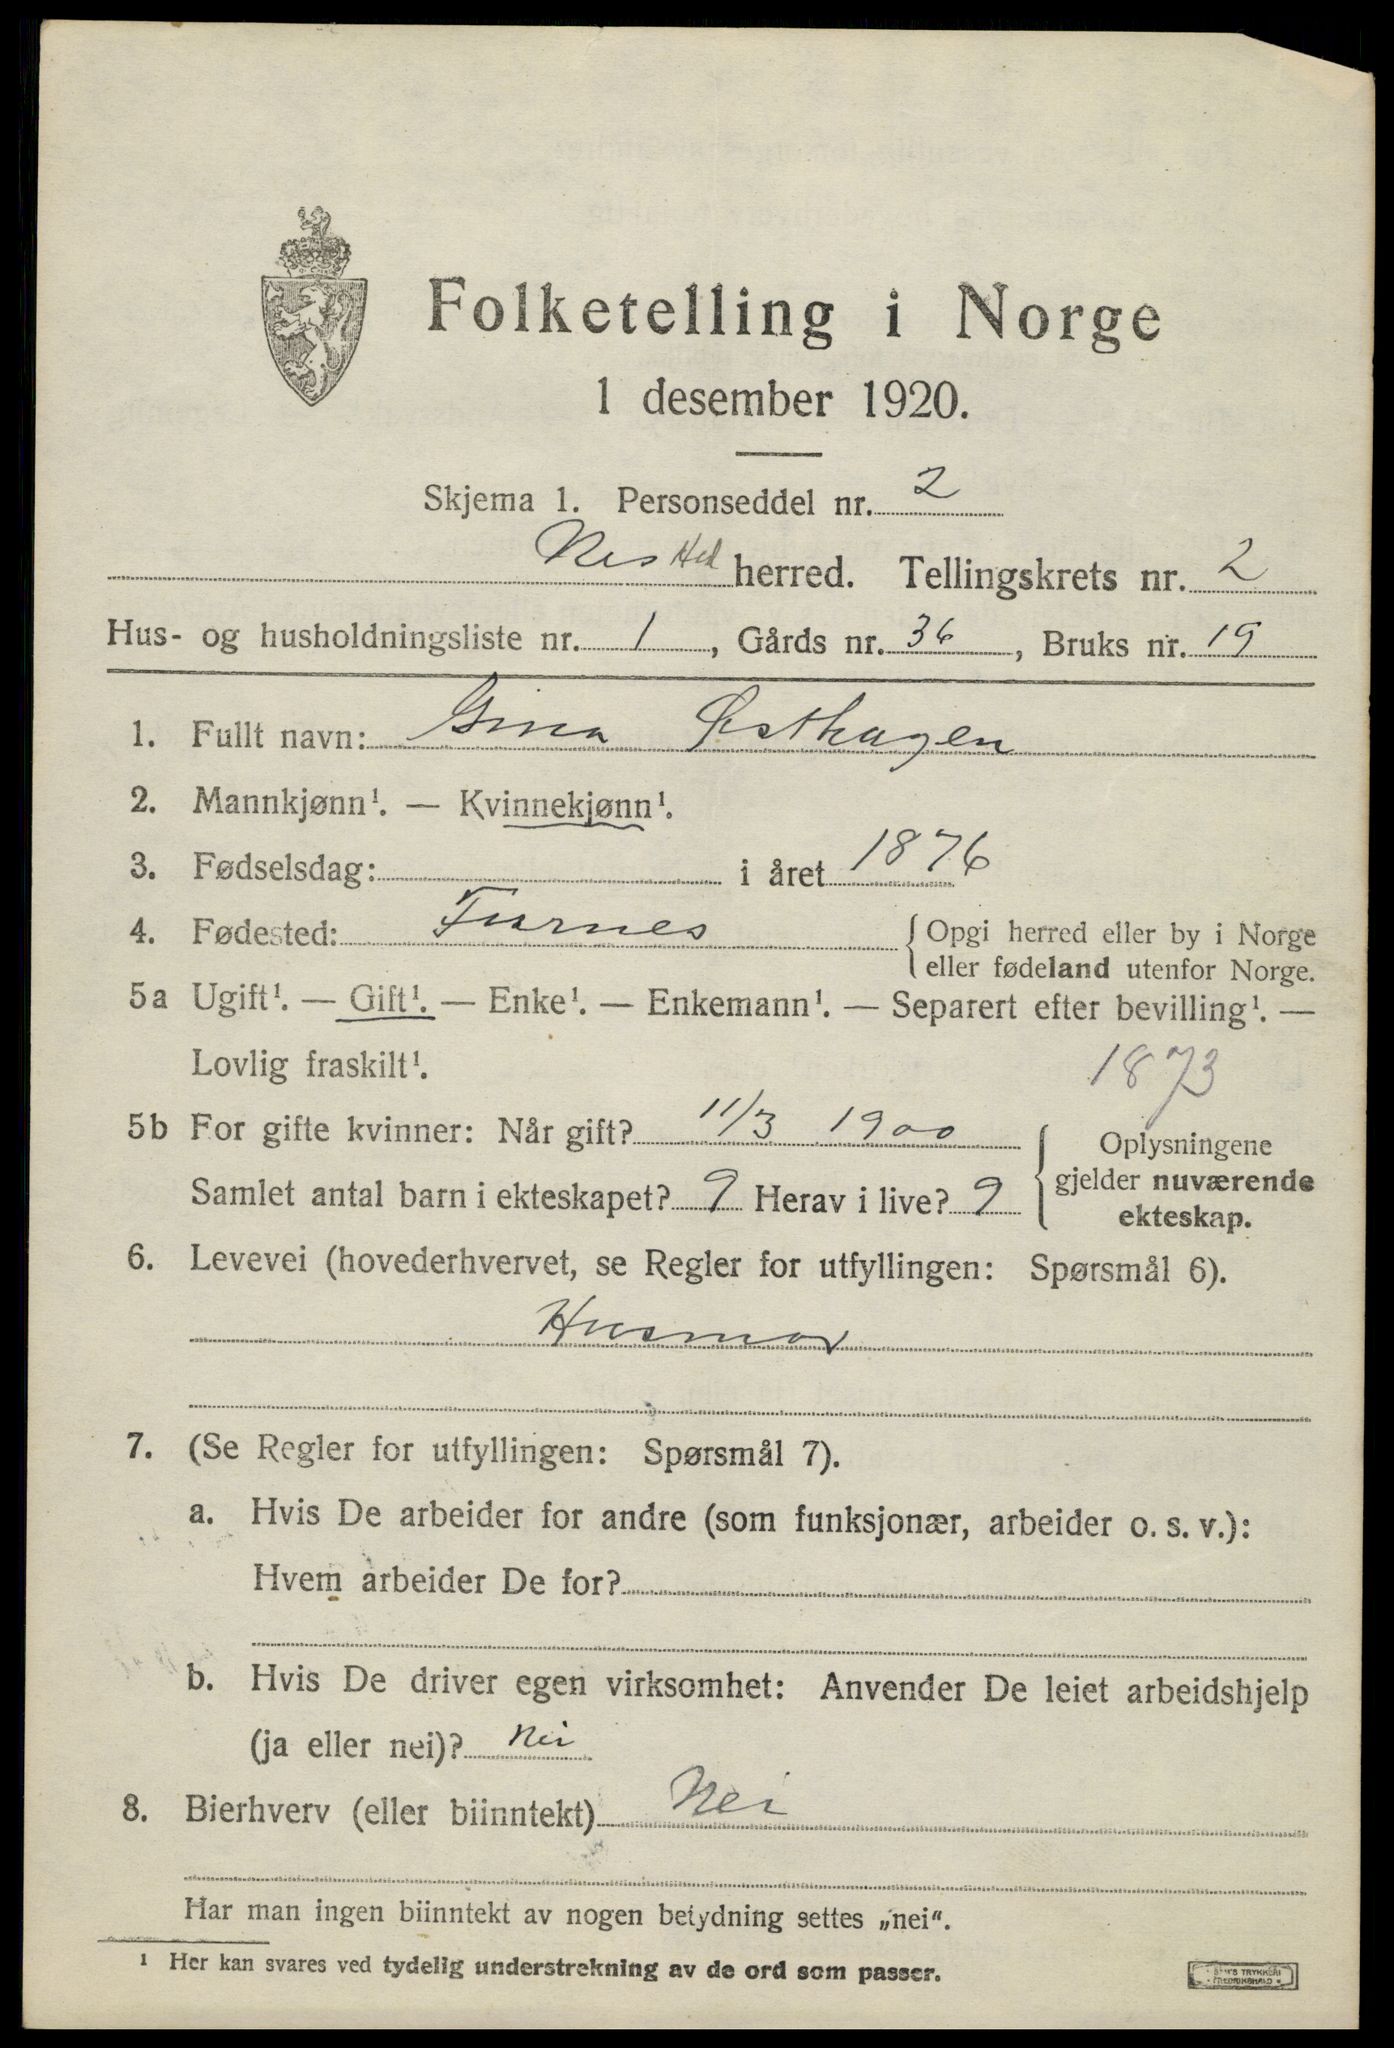 Folketelling i Norge
1 desember 1920.
Skjema 1. Personseddel nr. 2
Nes Hed herred. Tellingskrets nr. 2
Hus- og husholdningsliste nr. 1, Gårds nr. 36, Bruks nr. 19
1. Fullt navn: Gina Østhagen
2. Mannkjønn¹. — Kvinnekjønn¹.
3. Fødselsdag: i året 1876
4. Fødested: Furnes { Opgi herred eller by i Norge
eller fødeland utenfor Norge.
5a Ugift¹. — Gift¹. — Enke¹. — Enkemann¹. — Separert efter bevilling¹. —
Lovlig fraskilt¹.
1873
5b For gifte kvinner: Når gift? 11/3 1900
Samlet antal barn i ekteskapet? 9 Herav i live? 9
{ Oplysningene
gjelder nuværende
ekteskap.
6. Levevei (hovederhvervet, se Regler for utfyllingen: Spørsmål 6).
Husmor
7. (Se Regler for utfyllingen: Spørsmål 7).
a. Hvis De arbeider for andre (som funksjonær, arbeider o. s. v.):
Hvem arbeider De for?
b. Hvis De driver egen virksomhet: Anvender De leiet arbeidshjelp
(ja eller nei)? Nei
8. Bierhverv (eller biinntekt) Nei
Har man ingen biinntekt av nogen betydning settes „nei“.
¹ Her kan svares ved tydelig understrekning av de ord som passer.
TRYKKERI
FREDRIKSHALD